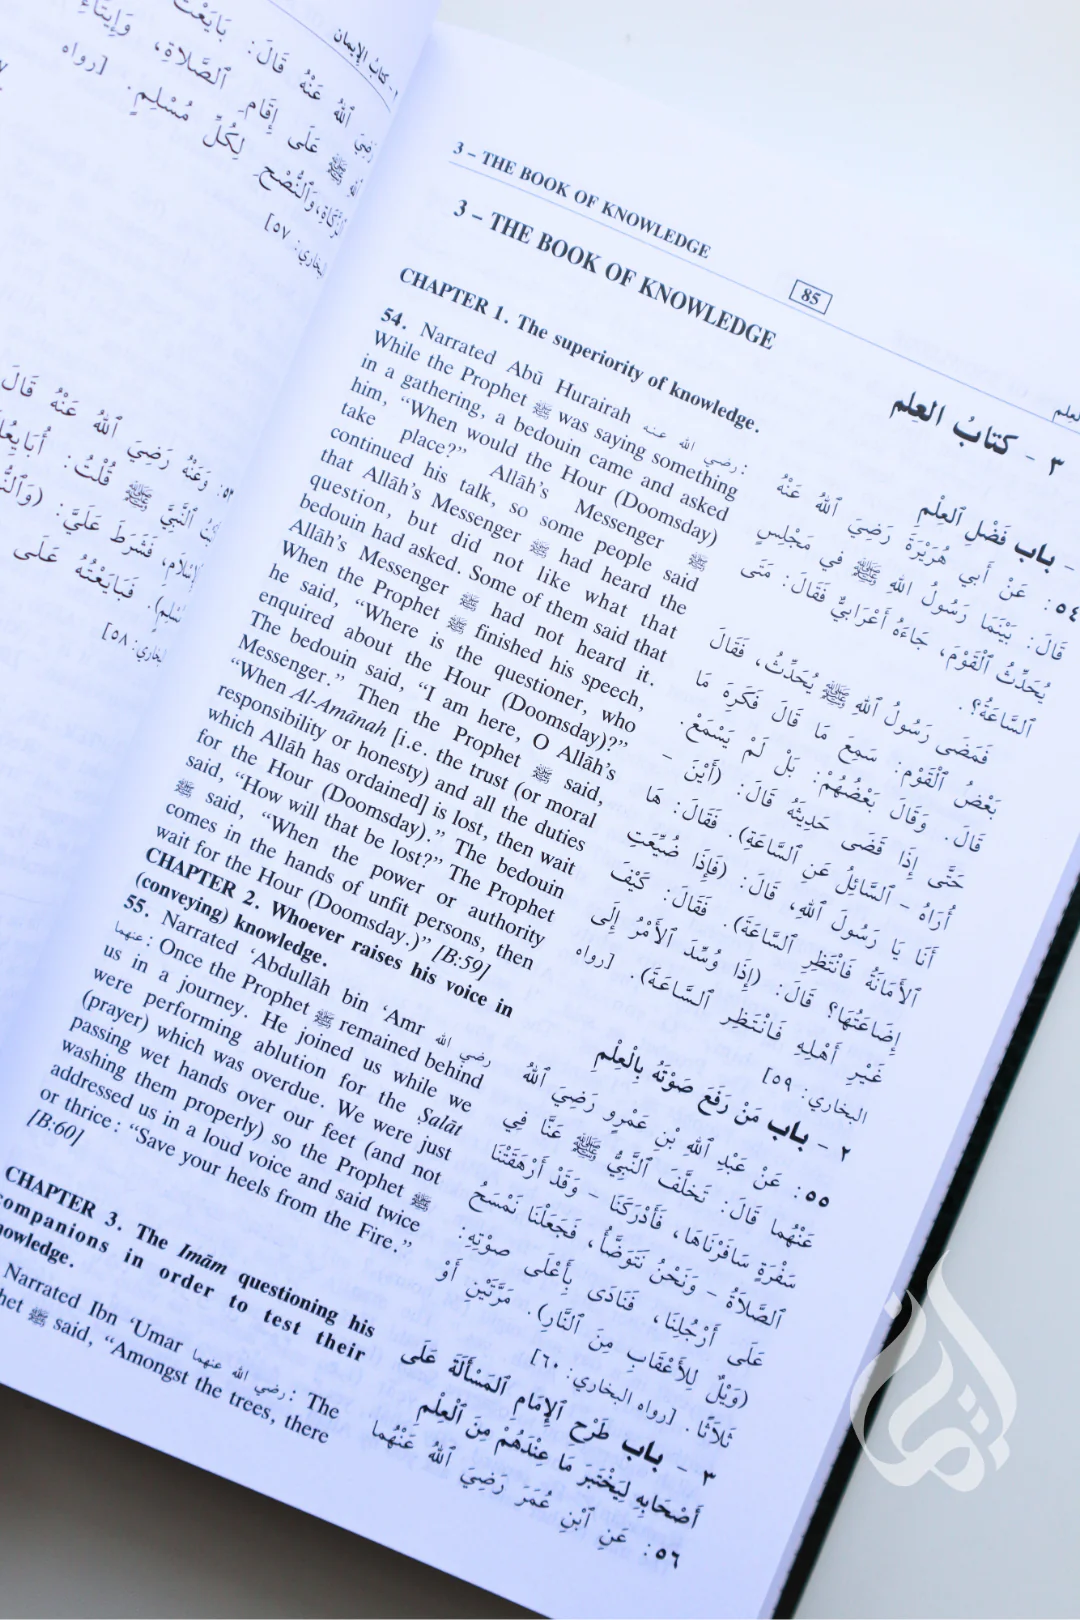 ٢ - كتابُ الإيمان
رَضِيَ ٱللهُ عَنْهُ قَالَ: بَايَعْتُ
ﷺ عَلَى إِقَامِ ٱلصَّلاةِ، وَإِيتَاءِ
ٱلزَّكَاةِ، وَٱلنُّصْحِ لِكُلِّ مُسْلِمٍ. [رواه
البخاري: ٥٧]
وَعَنْهُ رَضِيَ ٱللهُ عَنْهُ قَالَ
ٱلنَّبِيَّ ﷺ قُلْتُ: أُبَايِعُكَ
فَشَرَطَ عَلَيَّ: (وَٱلنُّصْحِ
فَبَايَعْتُهُ عَلَى
البخاري: ٥٨]
3 – THE BOOK OF KNOWLEDGE
85
3 – THE BOOK OF KNOWLEDGE
CHAPTER 1. The superiority of knowledge.
54. Narrated Abū Hurairah رضي الله عنه:
While the Prophet ﷺ was saying something
in a gathering, a bedouin came and asked
him, “When would the Hour (Doomsday)
take place?” Allāh’s Messenger ﷺ
continued his talk, so some people said
that Allāh’s Messenger ﷺ had heard the
question, but did not like what that
bedouin had asked. Some of them said that
Allāh’s Messenger ﷺ had not heard it.
When the Prophet ﷺ finished his speech,
he said, “Where is the questioner, who
enquired about the Hour (Doomsday)?”
The bedouin said, “I am here, O Allāh’s
Messenger.” Then the Prophet ﷺ said,
“When Al-Amānah [i.e. the trust (or moral
responsibility or honesty) and all the duties
which Allāh has ordained] is lost, then wait
for the Hour (Doomsday).” The bedouin
said, “How will that be lost?” The Prophet
ﷺ said, “When the power or authority
comes in the hands of unfit persons, then
wait for the Hour (Doomsday.)” [B:59]
CHAPTER 2. Whoever raises his voice in
(conveying) knowledge.
55. Narrated ‘Abdullāh bin ‘Amr رضي الله
عنهما: Once the Prophet ﷺ remained behind
us in a journey. He joined us while we
were performing ablution for the Ṣalāt
(prayer) which was overdue. We were just
passing wet hands over our feet (and not
washing them properly) so the Prophet ﷺ
addressed us in a loud voice and said twice
or thrice: “Save your heels from the Fire.”
[B:60]
CHAPTER 3. The Imām questioning his
companions in order to test their
knowledge.
Narrated Ibn ‘Umar رضي الله عنهما: The
ﷺ said, “Amongst the trees, there
٣ - كتابُ العِلم
- باب فَضْلِ ٱلعِلْمِ
٥٤: عَنْ أَبي هُرَيْرَةَ رَضِيَ ٱللهُ عَنْهُ
قَالَ: بَيْنَمَا رَسُولُ اللهِ ﷺ في مَجْلِسٍ
يُحَدِّثُ ٱلْقَوْمَ، جَاءَهُ أَعْرَابيٌّ فَقَالَ: مَتَى
ٱلسَّاعَةُ؟.
فَمَضَى رَسُولُ ٱللهِ ﷺ يُحَدِّثُ، فَقَالَ
بَعْضُ ٱلْقَوْمِ: سَمِعَ مَا قَالَ فَكَرِهَ مَا
قَالَ. وَقَالَ بَعْضُهُمْ: بَلْ لَمْ يَسْمَعْ.
حَتَّى إِذَا قَضَى حَدِيثَهُ قَالَ: (أَيْنَ -
أُرَاهُ - ٱلسَّائِلُ عَنِ ٱلسَّاعَةِ). فَقَالَ: هَا
أَنَا يَا رَسُولَ ٱللهِ، قَالَ: (فَإِذَا ضُيِّعَتِ
ٱلأَمَانَةُ فَانْتَظِرِ ٱلسَّاعَةَ). فَقَالَ: كَيْفَ
إِضَاعَتُهَا؟ قَالَ: (إِذَا وُسِّدَ ٱلأَمْرُ إِلَى
غَيْرِ أَهْلِهِ فَانْتَظِرِ ٱلسَّاعَةَ). [رواه
البخاري: ٥٩]
٢ - باب مَنْ رَفَعَ صَوْتَهُ بِالْعِلْمِ
٥٥: عَنْ عَبْدِ ٱللهِ بْنِ عَمْرٍو رَضِيَ ٱللهُ
عَنْهُمَا قَالَ: تَخَلَّفَ ٱلنَّبِيُّ ﷺ عَنَّا فِي
سَفْرَةٍ سَافَرْنَاهَا، فَأَدْرَكَنَا - وَقَدْ أَرْهَقَتْنَا
ٱلصَّلاَةُ - وَنَحْنُ نَتَوَضَّأُ، فَجَعَلْنَا نَمْسَحُ
عَلَى أَرْجُلِنَا، فَنَادَى بِأَعْلَى صَوْتِهِ:
(وَيْلٌ لِلأَعْقَابِ مِنَ ٱلنَّارِ). مَرَّتَيْنِ أَوْ
ثَلاَثًا. [رواه البخاري: ٦٠]
٣ - باب طَرْحِ ٱلإِمَامِ ٱلمَسْأَلَةَ عَلَى
أَصْحَابِهِ لِيَخْتَبِرَ مَا عِنْدَهُمْ مِنَ ٱلْعِلْمِ
٥٦: عَنِ ٱبْنِ عُمَرَ رَضِيَ ٱللهُ عَنْهُمَا